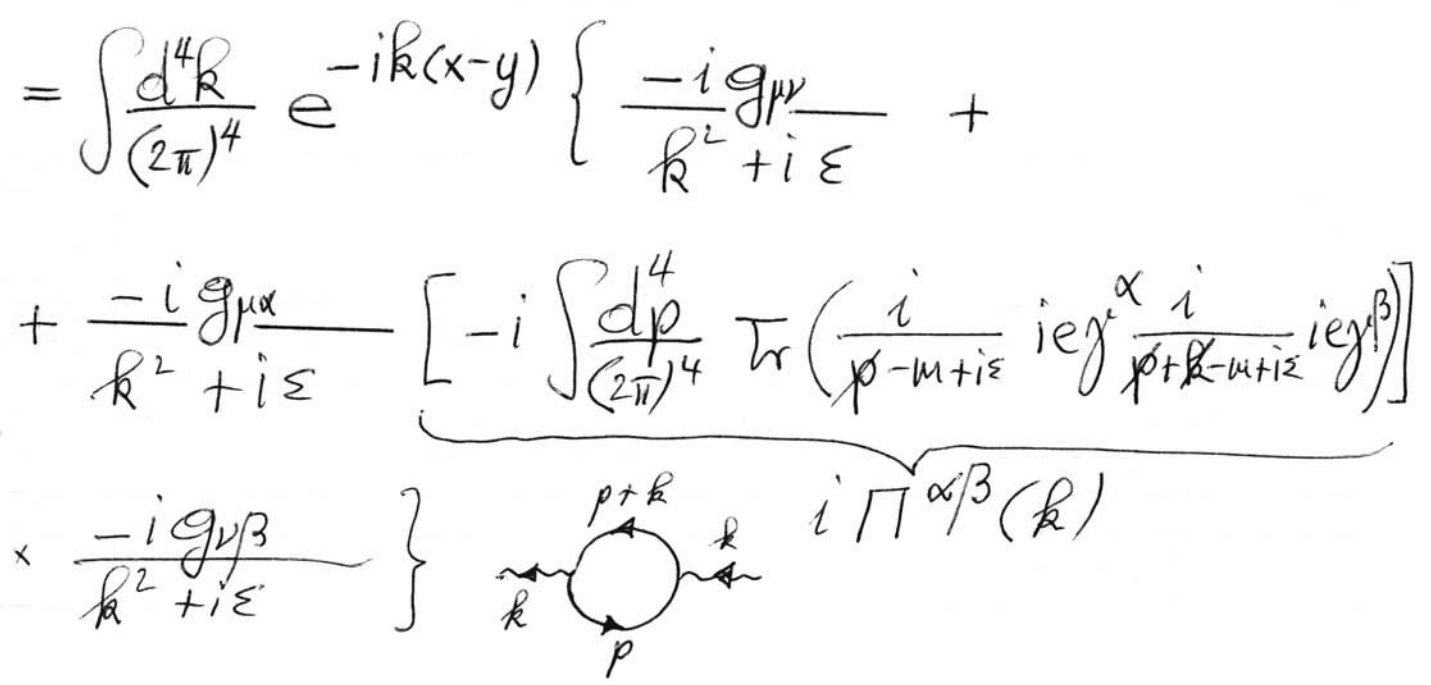 = ∫ d⁴k/(2π)⁴ e^{-ik(x-y)} { -i g_{μν}/(k² + iε) +
+ -i g_{μα}/(k² + iε) [ -i ∫ d⁴p/(2π)⁴ Tr ( i/(p̸ - m + iε) ieγ^α i/(p̸ + k̸ - m + iε) ieγ^β ) ]
iΠ^{αβ}(k)
× -i g_{νβ}/(k² + iε) }
p+k
k
k
p